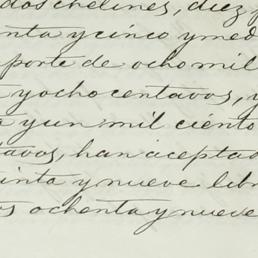 dos chelines, diez
nta y cinco y med
porte de ocho mil
y ocho centavos, y
a y un mil ciento
tavos, han aceptad
inta y nueve libr
os ochenta y nueve